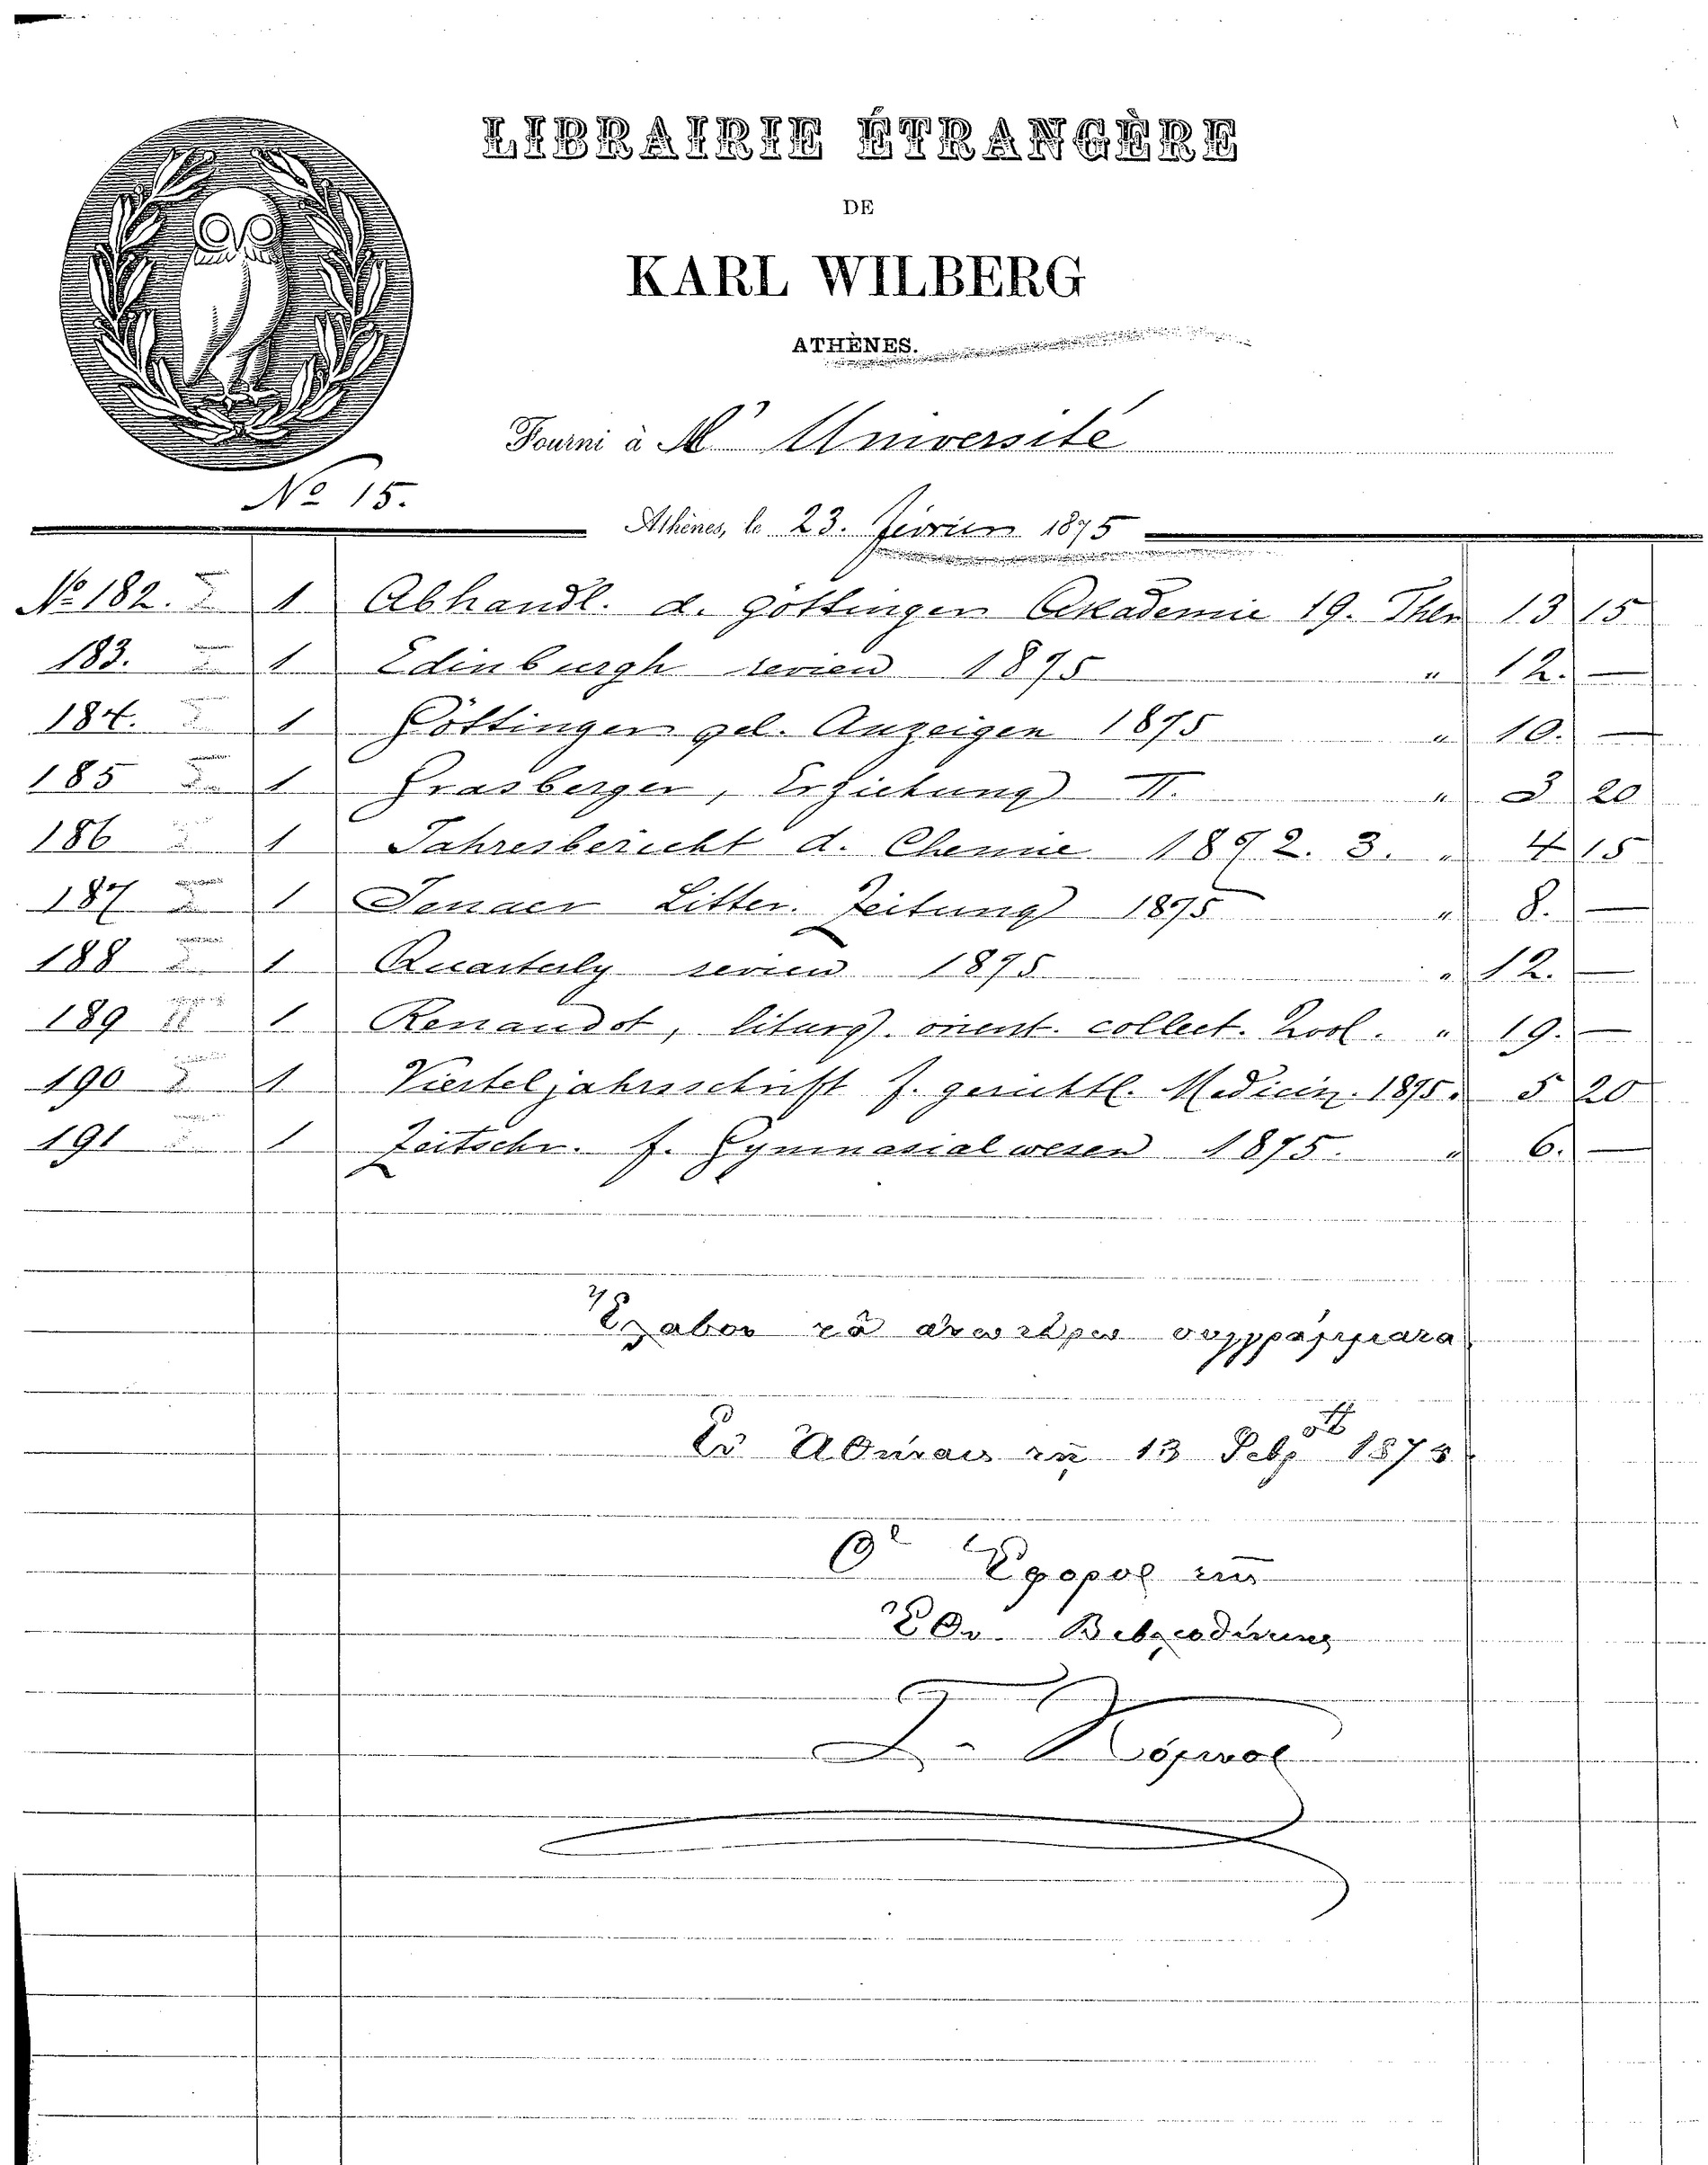 LIBRAIRIE ÉTRANGÈRE
DE
KARL WILBERG
ATHÈNES.
Fourni à Mr Université
No 15.
Athènes, le 23. février 1875
No 182. I 1 Abhandl. d. göttingen Akademie 19. Thlr 13 15
183. I 1 Edinburgh review 1875 " 12. —
184. I 1 Göttinger gel. Anzeigen 1875 " 10. —
185 I 1 Grasberger, Erziehung II. " 3 20
186 I 1 Jahresbericht d. Chemie 1872. 3. " 4 15
187 I 1 Jenaer Litter. Zeitung 1875 " 8. —
188 I 1 Quarterly review 1875 " 12. —
189 II 1 Renaudot, liturg. orient. collect. 2vol. " 19. —
190 I 1 Vierteljahrsschrift f. gerichtl. Medicin. 1875. 5 20
191 I 1 Zeitschr. f. Gymnasialwesen 1875. " 6. —
Ἔλαβον τὰ ἀνωτέρω συγγράμματα
Ἐν Ἀθήναις τῇ 13 Φεβρ 1875
Ὁ Ἔφορος τῆς
Ἐθν Βιβλιοθήκης
Γ. Κόζακος